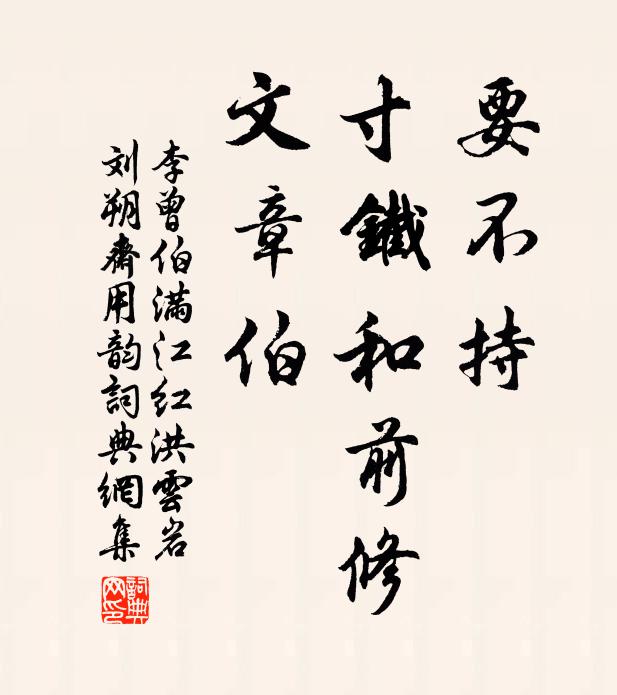 要不持
寸鐵和前修
文章伯
李曾伯满江红洪雲岩
刘朔齋用韵詞典網集
詞典网印